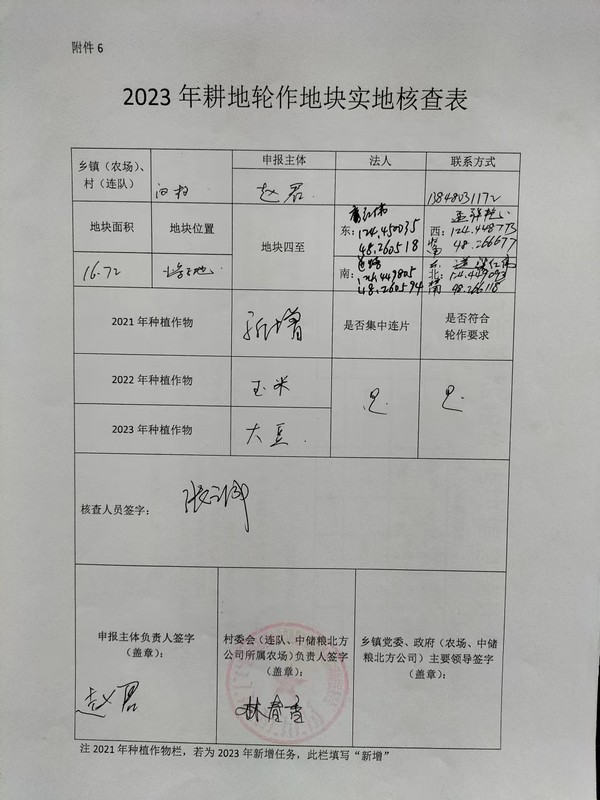 附件 6
2023 年耕地轮作地块实地核查表
乡镇（农场）、村（连队）
申报主体
法人
联系方式
赵君
13848031172
地块面积
地块位置
地块四至
东：
124.450035
48.260518
西：
124.448773
48.266677
南：
124.449805
48.260594
北：
124.449093
48.26618
16.72
2021 年种植作物
新增
是否集中连片
是否符合轮作要求
2022 年种植作物
玉米
是.
是.
2023 年种植作物
大豆.
核查人员签字：
申报主体负责人签字
（盖章）：
赵君
村委会（连队、中储粮北方
公司所属农场）负责人签字
（盖章）：
乡镇党委、政府（农场、中储
粮北方公司）主要领导签字
（盖章）：
注 2021 年种植作物栏，若为 2023 年新增任务，此栏填写“新增”